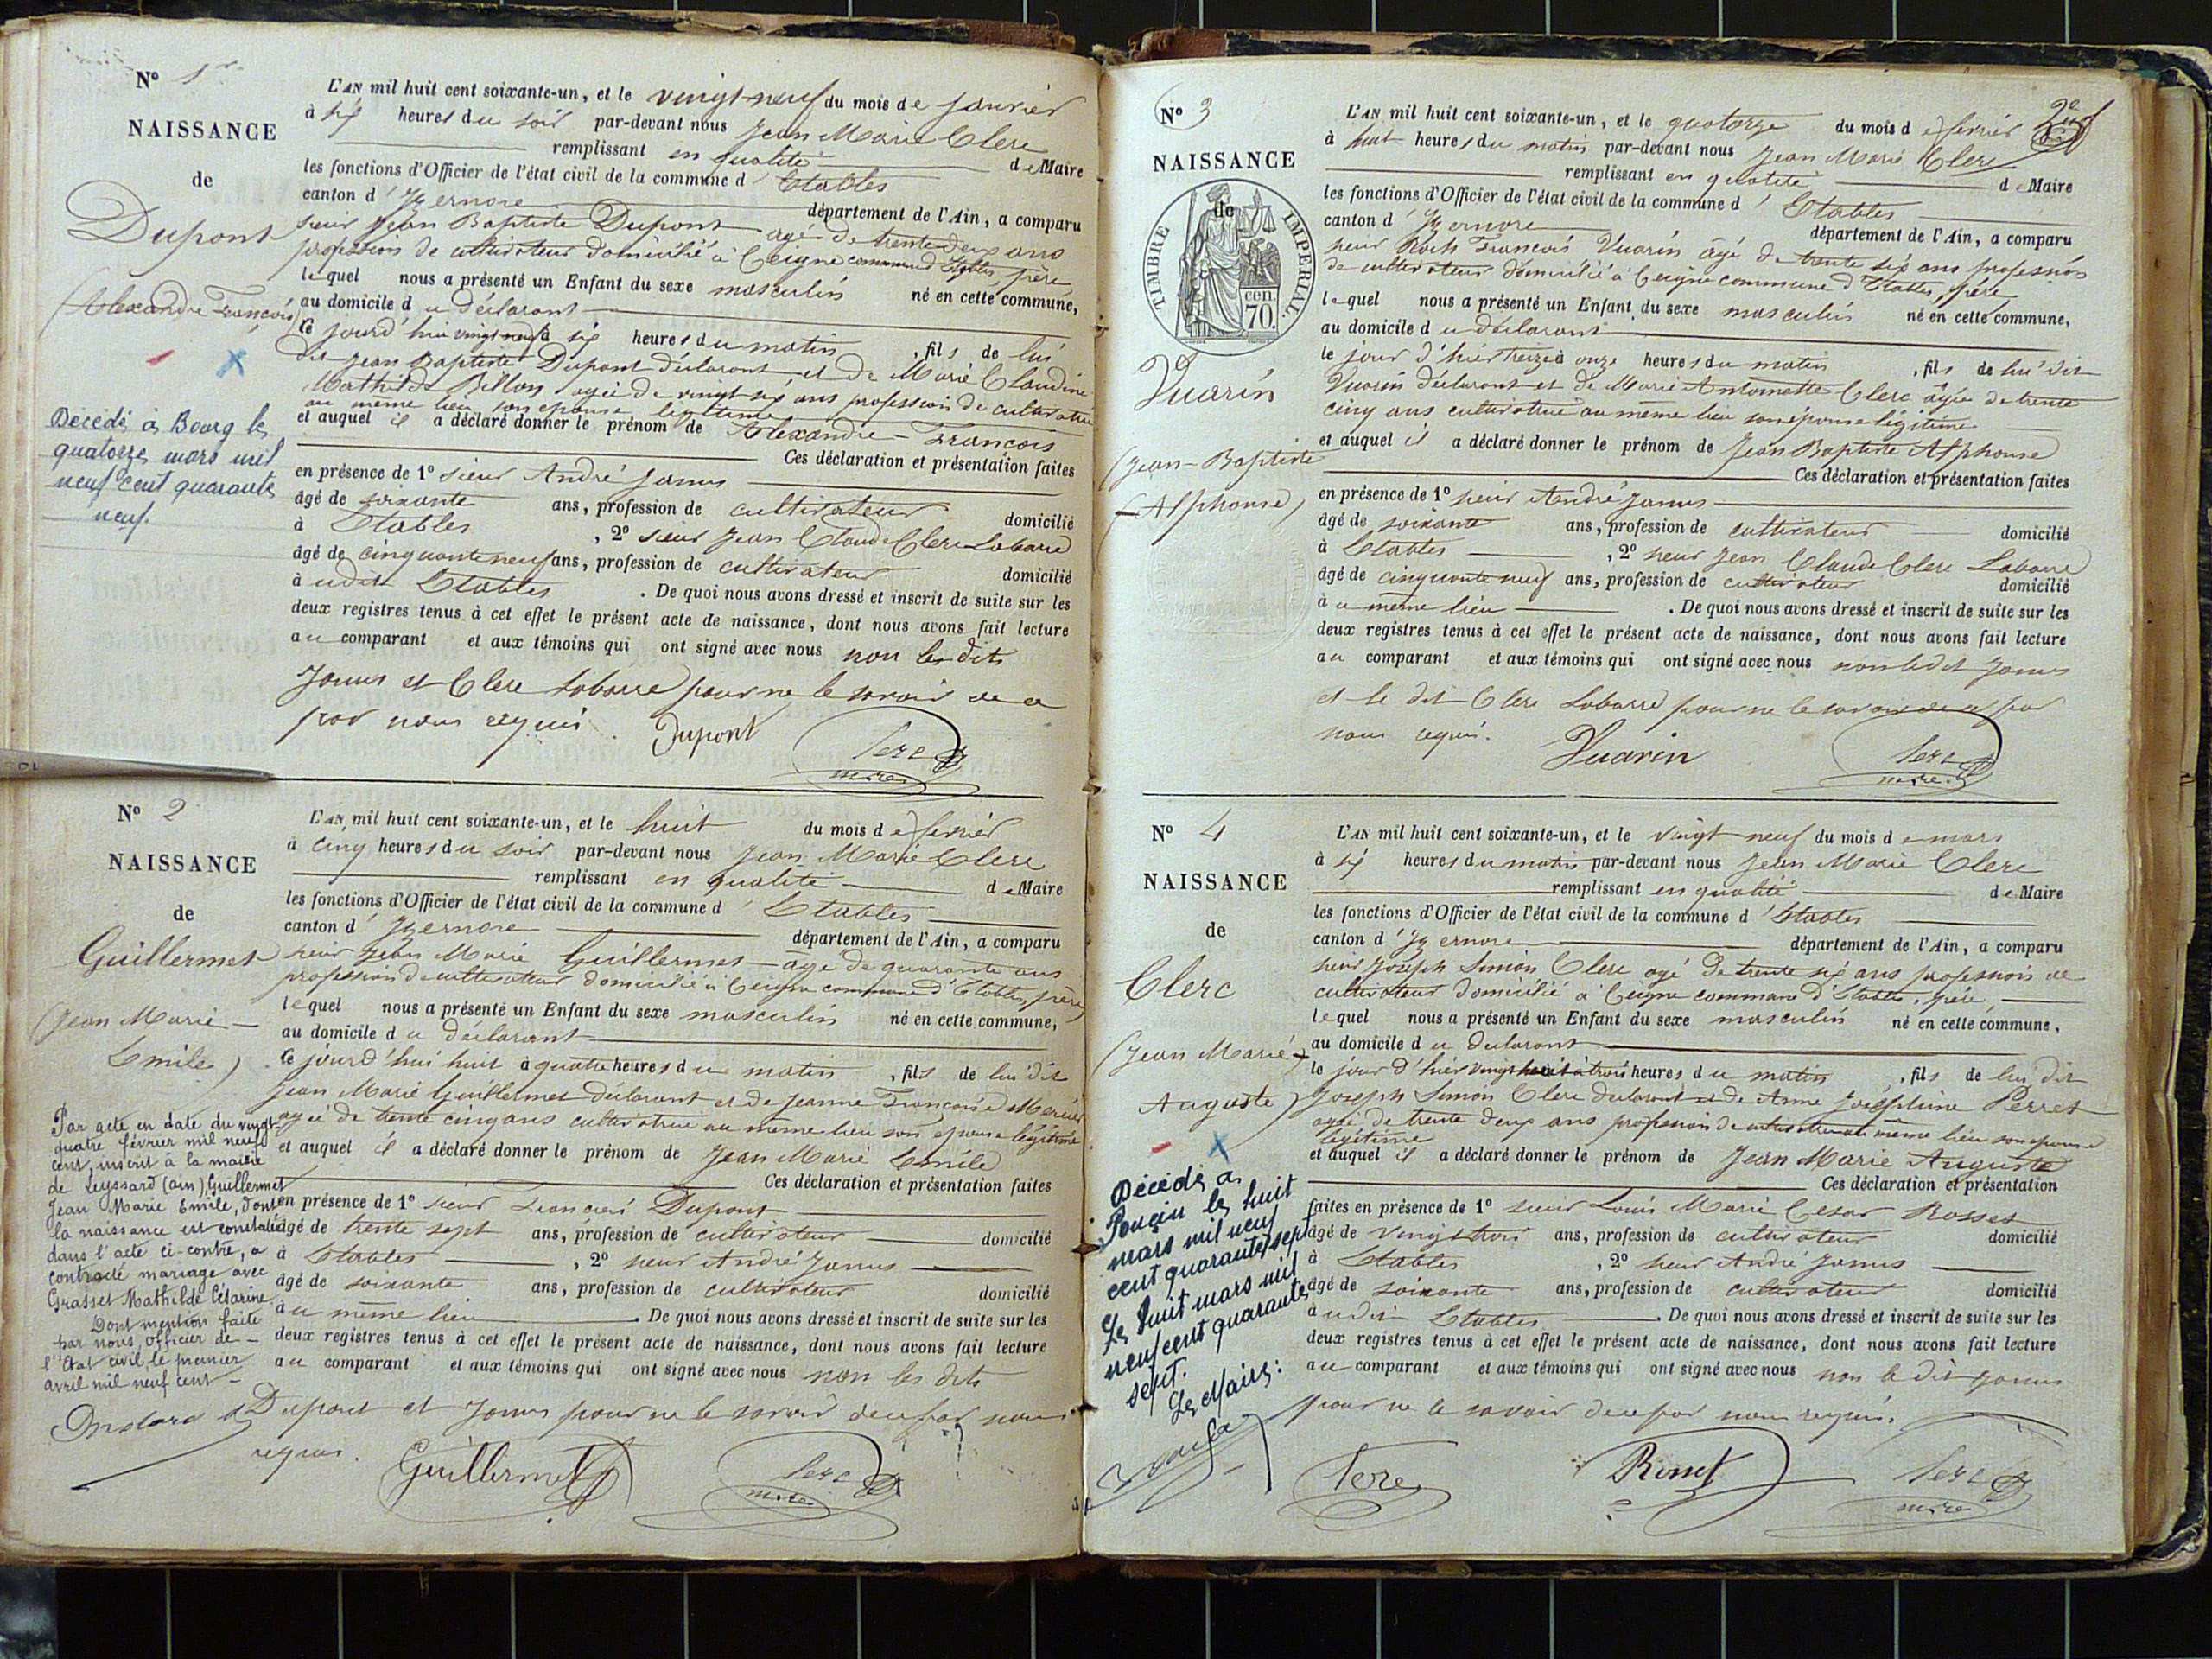 N° 1er
NAISSANCE
de
Dupont
(Alexandre François)
Décédé à Bourg le
quatorze mars mil
neuf cent quarante
neuf.
L'AN mil huit cent soixante-un, et le vingt neuf du mois de janvier
à six heures du soir par-devant nous Jean Marie Clerc
remplissant en qualité de Maire
les fonctions d'Officier de l'état civil de la commune d'Etables
canton d'Izernore département de l'Ain, a comparu
sieur Jean Baptiste Dupont agé de trente deux ans
profession de cultivateur domicilié à Ceigne commune d'Etables, père
lequel nous a présenté un Enfant du sexe masculin né en cette commune,
au domicile du déclarant
ce jourd'hui vingt neuf à six heures du matin, fils de lui
dit Jean Baptiste Dupont déclarant et de Marie Claudine
Mathilde Billon agée de vingt six ans profession de cultivatrice
au même lieu son epouse légitime
et auquel il a déclaré donner le prénom de Alexandre-François
Ces déclaration et présentation faites
en présence de 1° sieur André Janus
âgé de soixante ans, profession de cultivateur domicilié
à Etables, 2° sieur Jean Claude Clerc Labarre
âgé de cinquante neuf ans, profession de cultivateur domicilié
à udit Etables. De quoi nous avons dressé et inscrit de suite sur les
deux registres tenus à cet effet le présent acte de naissance, dont nous avons fait lecture
au comparant et aux témoins qui ont signé avec nous non les dits
Janus et Clerc Labarre pour ne le savoir de ce
par nous requis. Dupont Clerc
maire
N° 2
NAISSANCE
de
Guillermet
(Jean Marie
Emile)
Par acte en date du vingt
quatre février mil neuf
cent, inscrit à la mairie
de Leyssard (ain), Guillermet
Jean Marie Emile, dont
la naissance est constatée
dans l'acte ci-contre, a
contracté mariage avec
Grasset Mathilde Césarine
Dont mention faite
par nous, officier de
l'état civil, le premier
avril mil neuf cent
L'AN mil huit cent soixante-un, et le huit du mois de février
à cinq heures du soir par-devant nous Jean Marie Clerc
remplissant en qualité de Maire
les fonctions d'Officier de l'état civil de la commune d'Etables
canton d'Izernore département de l'Ain, a comparu
sieur Jean Marie Guillermet agé de quarante ans
profession de cultivateur domicilié à Ceigne commune d'Etables, père
lequel nous a présenté un Enfant du sexe masculin né en cette commune,
au domicile du déclarant
ce jourd'hui huit à quatre heures du matin, fils de lui dit
Jean Marie Guillermet déclarant et de Jeanne Françoise Mercier
agée de trente cinq ans cultivatrice au meme lieu son epouse légitime
et auquel il a déclaré donner le prénom de Jean Marie Emile
Ces déclaration et présentation faites
en présence de 1° sieur François Dupont
âgé de trente sept ans, profession de cultivateur domicilié
à Etables, 2° sieur André Janus
âgé de soixante ans, profession de cultivateur domicilié
àu même lieu. De quoi nous avons dressé et inscrit de suite sur les
deux registres tenus à cet effet le présent acte de naissance, dont nous avons fait lecture
au comparant et aux témoins qui ont signé avec nous non les dits
Dupont et Janus pour ne le savoir de ce par nous
requis. Guillermet Clerc
maire
N° 3
NAISSANCE
de
TIMBRE IMPERIAL
70 cen.
Vuarin
(Jean-Baptiste
Alphonse)
L'AN mil huit cent soixante-un, et le quatorze du mois de février
à huit heures du matin par-devant nous Jean Marie Clerc
remplissant en qualité de Maire
les fonctions d'Officier de l'état civil de la commune d'Etables
canton d'Izernore département de l'Ain, a comparu
sieur Roch François Vuarin âgé de trente six ans profession
de cultivateur domicilié à Ceigne commune d'Etables, père
lequel nous a présenté un Enfant du sexe masculin né en cette commune,
au domicile du déclarant
le jour d'hier treize à onze heures du matin, fils de lui dit
Vuarin déclarant et de Marie Antoinette Clerc âgée de trente
cinq ans cultivatrice au même lieu son épouse légitime
et auquel il a déclaré donner le prénom de Jean Baptiste Alphonse
Ces déclaration et présentation faites
en présence de 1° sieur André Janus
âgé de soixante ans, profession de cultivateur domicilié
à Etables, 2° sieur Jean Claude Clerc Labarre
âgé de cinquante neuf ans, profession de cultivateur domicilié
àu même lieu. De quoi nous avons dressé et inscrit de suite sur les
deux registres tenus à cet effet le présent acte de naissance, dont nous avons fait lecture
au comparant et aux témoins qui ont signé avec nous non ledit Janus
et le dit Clerc Labarre pour ne le savoir de ce par
nous requis. Vuarin Clerc
maire
N° 4
NAISSANCE
de
Clerc
(Jean Marie
Auguste)
Décédé à
Poncin le huit
mars mil neuf
cent quarante sept
Le huit mars mil
neuf cent quarante
sept.
Le Maire:
L'AN mil huit cent soixante-un, et le vingt neuf du mois de mars
à six heures du matin par-devant nous Jean Marie Clerc
remplissant en qualité de Maire
les fonctions d'Officier de l'état civil de la commune d'Etables
canton d'Izernore département de l'Ain, a comparu
sieur Joseph Simon Clerc agé de trente six ans profession de
cultivateur domicilié à Ceigne commune d'Etables, père,
lequel nous a présenté un Enfant du sexe masculin né en cette commune,
au domicile du déclarant
le jour d'hier vingt huit à trois heures du matin, fils de lui dit
Joseph Simon Clerc déclarant et de Anne Joséphine Perret
agée de trente deux ans profession de cultivatrice au même lieu son epouse
légitime
et auquel il a déclaré donner le prénom de Jean Marie Auguste
Ces déclaration et présentation
faites en présence de 1° sieur Louis Marie Cesar Rosset
âgé de vingt trois ans, profession de cultivateur domicilié
à Etables, 2° sieur André Janus
âgé de soixante ans, profession de cultivateur domicilié
à udit Etables. De quoi nous avons dressé et inscrit de suite sur les
deux registres tenus à cet effet le présent acte de naissance, dont nous avons fait lecture
au comparant et aux témoins qui ont signé avec nous non le dit Janus
pour ne le savoir de ce par nous requis.
Clerc Rosset Clerc
maire